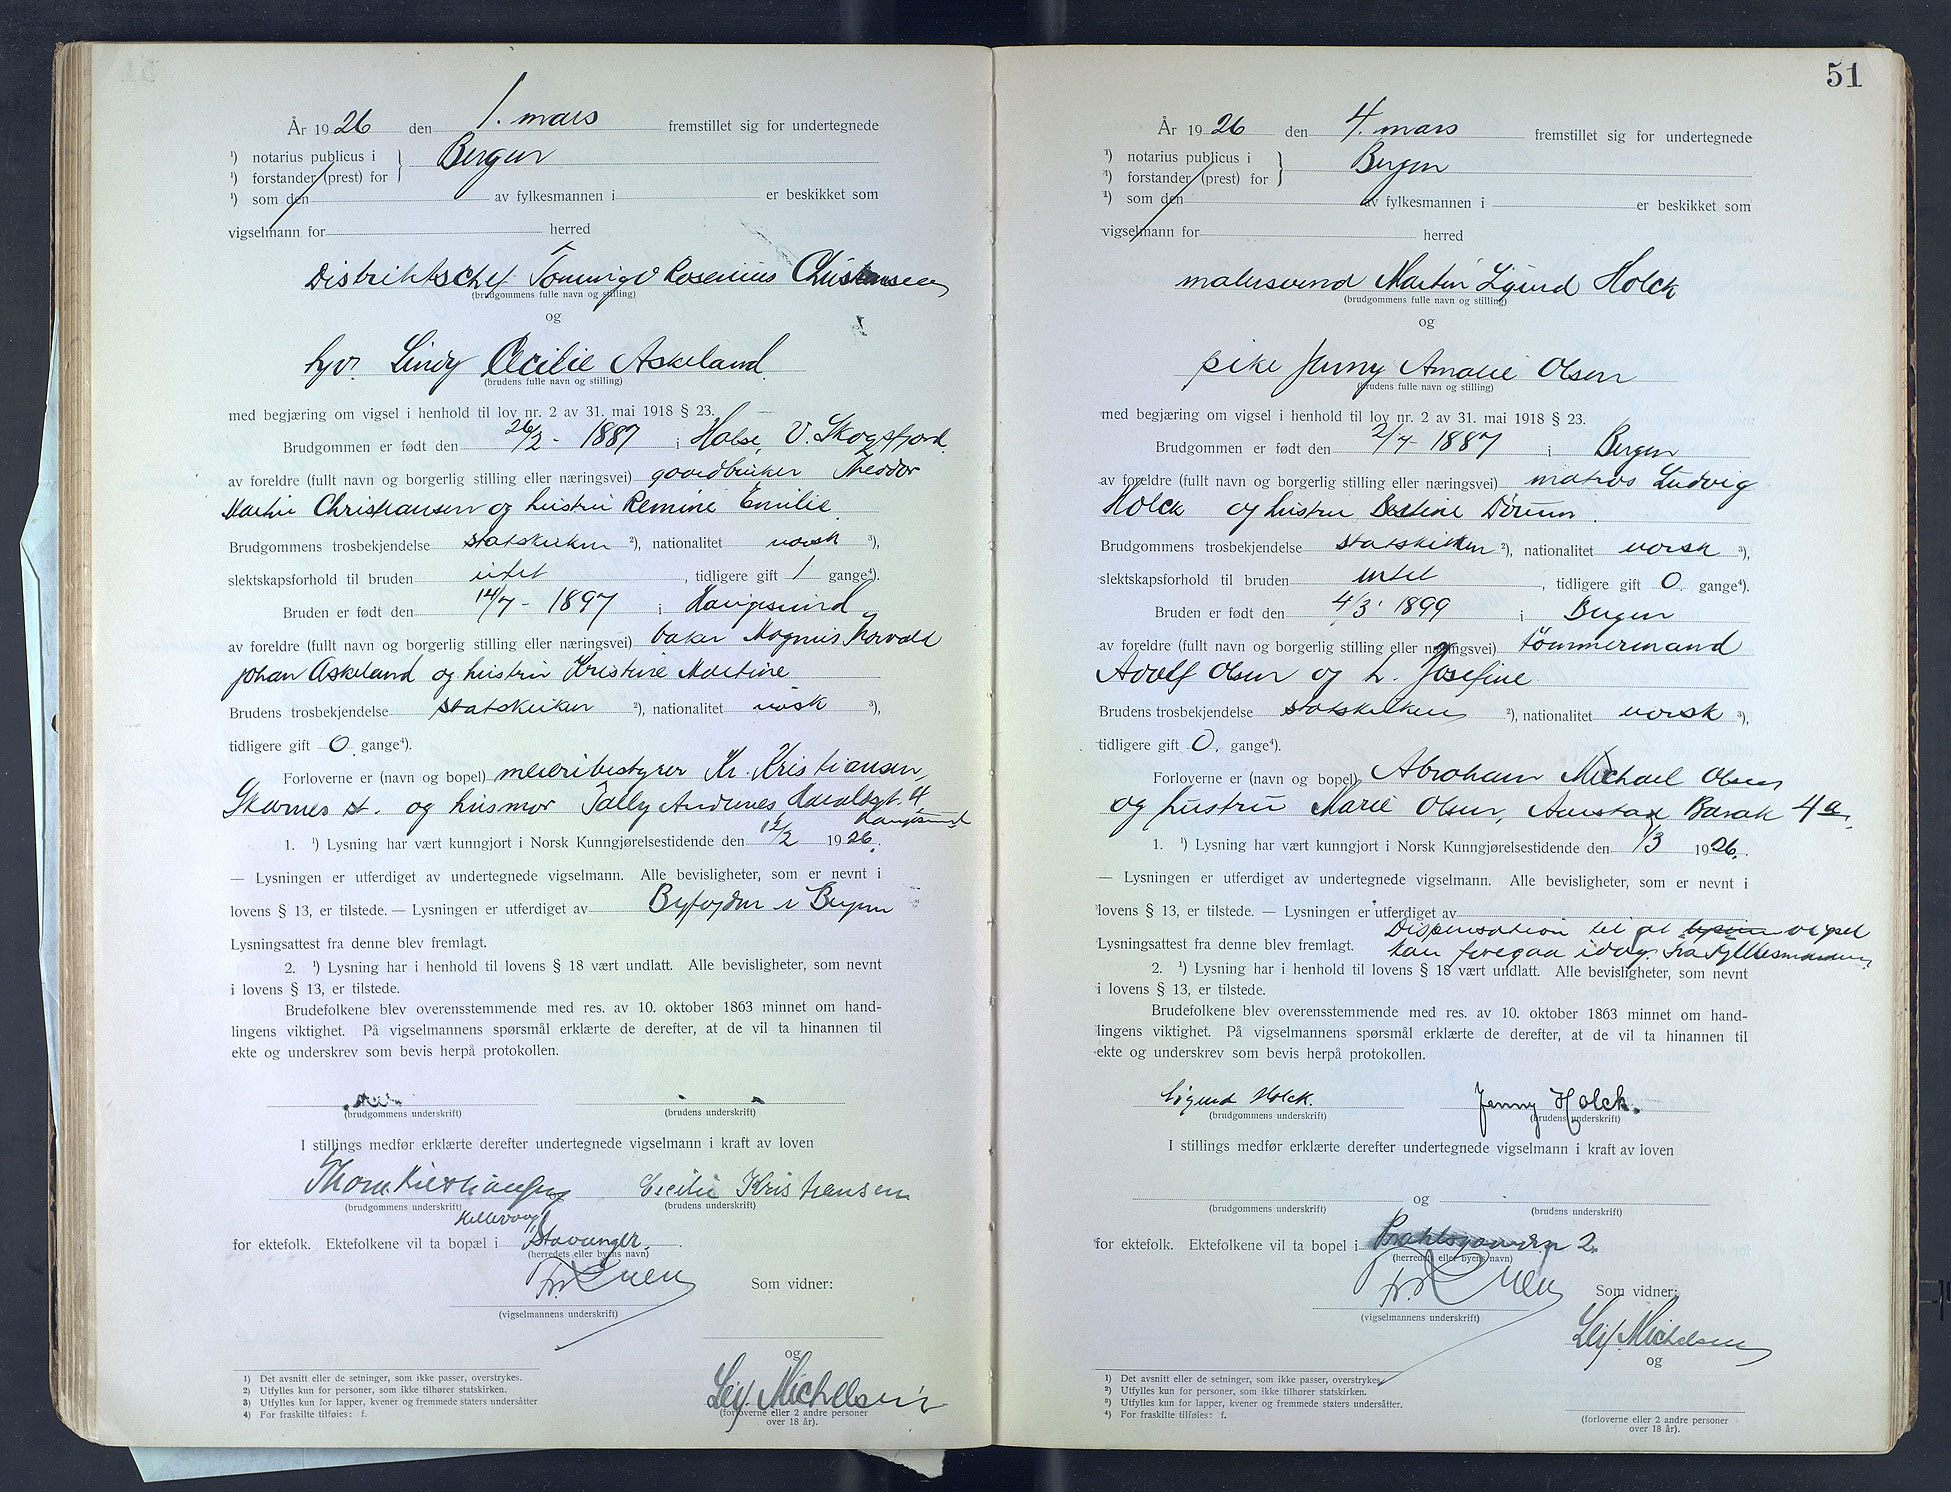 År 1926 den 1. mars fremstillet sig for undertegnede
¹) notarius publicus i } Bergen
¹) forstander (prest) for
¹) som den av fylkesmannen i er beskikket som
vigselmann for herred
Distriktschef Rosenius Christensen
(brudgommens fulle navn og stilling)
og
frk. Cecilie Askeland
(brudens fulle navn og stilling)
med begjæring om vigsel i henhold til lov nr. 2 av 31. mai 1918 § 23.
Brudgommen er født den 26/2 - 1887 i V. Skogsfjord
av foreldre (fullt navn og borgerlig stilling eller næringsvei) gaardbruker Theodor
Martin Christiansen og hustru Remine Emilie
Brudgommens trosbekjendelse statskirken ²), nationalitet norsk ³),
slektskapsforhold til bruden intet , tidligere gift 1 gange⁴).
Bruden er født den 14/7 - 1897 i Haugesund
av foreldre (fullt navn og borgerlig stilling eller næringsvei) baker Magnus Thorvald
Johan Askeland og hustru Kristine Martine
Brudens trosbekjendelse statskirken ²), nationalitet norsk ³),
tidligere gift 0 gange⁴).
Forloverne er (navn og bopel) meieribestyrer Kr. Kristiansen,
Skarnes st. og husmor Andenes Haraldsgt. 4
Haugesund
1. ¹) Lysning har vært kunngjort i Norsk Kunngjørelsestidende den 12/2 1926.
— Lysningen er utferdiget av undertegnede vigselmann. Alle bevisligheter, som er nevnt i
lovens § 13, er tilstede. — Lysningen er utferdiget av Byfogden i Bergen
Lysningsattest fra denne blev fremlagt.
2. ¹) Lysning har i henhold til lovens § 18 vært undlatt. Alle bevisligheter, som nevnt
i lovens § 13, er tilstede.
Brudefolkene blev overensstemmende med res. av 10. oktober 1863 minnet om hand-
lingens viktighet. På vigselmannens spørsmål erklærte de derefter, at de vil ta hinannen til
ekte og underskrev som bevis herpå protokollen.
(brudgommens underskrift) (brudens underskrift)
I stillings medfør erklærte derefter undertegnede vigselmann i kraft av loven
Cecilie Kristiansen
(brudgommens underskrift) (brudens underskrift)
Hillevaag
for ektefolk. Ektefolkene vil ta bopæl i Stavanger.
(herredets eller byens navn)
Som vidner:
(vigselmannens underskrift)
og
Leif Michelsen
(forloverne eller 2 andre personer
over 18 år).
1) Det avsnitt eller de setninger, som ikke passer, overstrykes.
2) Utfylles kun for personer, som ikke tilhører statskirken.
3) Utfylles kun for lapper, kvener og fremmede staters undersåtter
4) For fraskilte tilføies: f.
51
År 1926 den 4. mars fremstillet sig for undertegnede
¹) notarius publicus i } Bergen
¹) forstander (prest) for
¹) som den av fylkesmannen i er beskikket som
vigselmann for herred
malersvend Martin Sigurd Holck
(brudgommens fulle navn og stilling)
og
pike Jenny Amalie Olsen
(brudens fulle navn og stilling)
med begjæring om vigsel i henhold til lov nr. 2 av 31. mai 1918 § 23.
Brudgommen er født den 2/7 - 1887 i Bergen
av foreldre (fullt navn og borgerlig stilling eller næringsvei) matros Ludvig
Holck og hustru Bestine
Brudgommens trosbekjendelse statskirken ²), nationalitet norsk ³),
slektskapsforhold til bruden intet , tidligere gift 0 gange⁴).
Bruden er født den 4/3 1899 i Bergen
av foreldre (fullt navn og borgerlig stilling eller næringsvei) tømmermand
Adolf Olsen og h. Josefine
Brudens trosbekjendelse statskirken ²), nationalitet norsk ³),
tidligere gift 0. gange⁴).
Forloverne er (navn og bopel) Abraham Michael Olsen
og hustru Marie Olsen, Barak 4a.
1. ¹) Lysning har vært kunngjort i Norsk Kunngjørelsestidende den 1/3 1926.
— Lysningen er utferdiget av undertegnede vigselmann. Alle bevisligheter, som er nevnt i
lovens § 13, er tilstede. — Lysningen er utferdiget av
Dispensation til at vigsel
Lysningsattest fra denne blev fremlagt. kan foregaa idag fra Fylkesmanden
2. ¹) Lysning har i henhold til lovens § 18 vært undlatt. Alle bevisligheter, som nevnt
i lovens § 13, er tilstede.
Brudefolkene blev overensstemmende med res. av 10. oktober 1863 minnet om hand-
lingens viktighet. På vigselmannens spørsmål erklærte de derefter, at de vil ta hinannen til
ekte og underskrev som bevis herpå protokollen.
Sigurd Holck. Jenny Holck.
(brudgommens underskrift) (brudens underskrift)
I stillings medfør erklærte derefter undertegnede vigselmann i kraft av loven
og
(brudgommens underskrift) (brudens underskrift)
for ektefolk. Ektefolkene vil ta bopel i 2.
(herredets eller byens navn)
Som vidner:
(vigselmannens underskrift)
Leif Michelsen
og
¹) Det avsnitt eller de setninger, som ikke passer, overstrykes.
²) Utfylles kun for personer, som ikke tilhører statskirken.
³) Utfylles kun for lapper, kvener og fremmede staters undersåtter.
⁴) For fraskilte tilføies: f.
(forloverne eller 2 andre personer
over 18 år).